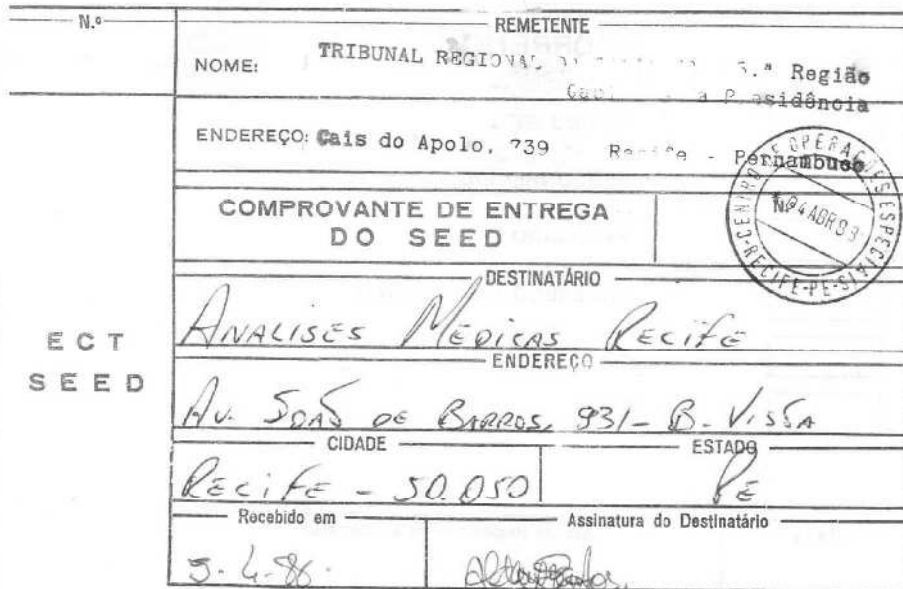 N.º
REMETENTE
NOME: TRIBUNAL REGIONAL 5.ª Região
Presidência
ENDEREÇO: Cais do Apolo, 739 Recife - Pernambuco
COMPROVANTE DE ENTREGA
DO SEED
Nº
CENTRO DE OPERAÇÕES ESPECIAIS
04 ABR
RECIFE-PE
DESTINATÁRIO
ANALISES MEDICAS RECIFE
ECT
SEED
ENDEREÇO
AV. JOÃO DE BARROS, 931 - B. VISTA
CIDADE
ESTADO
RECIFE - 50.050
PE
Recebido em
Assinatura do Destinatário
5.4.